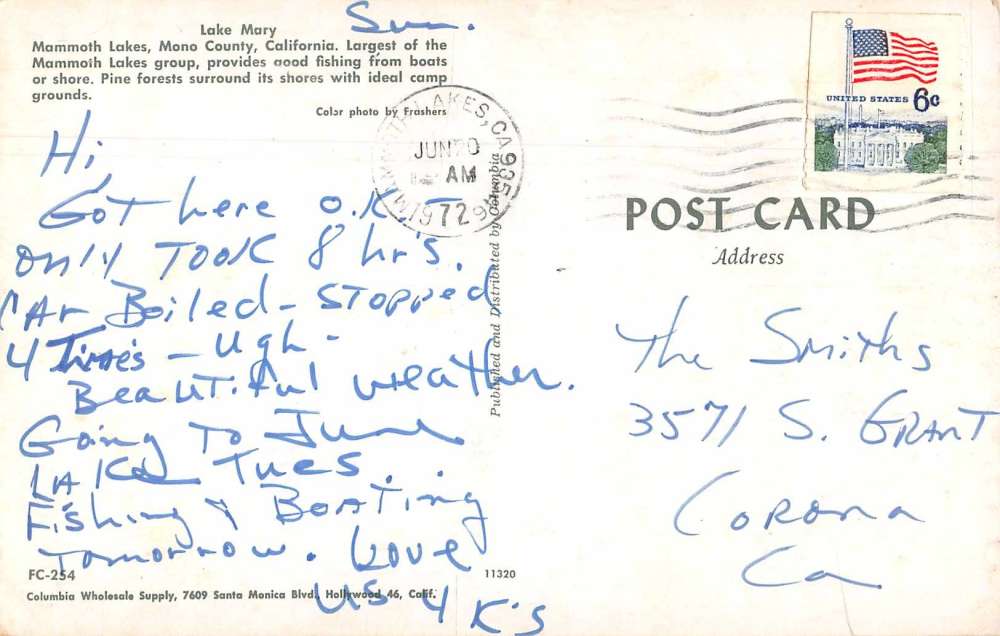 Lake Mary
Mammoth Lakes, Mono County, California. Largest of the
Mammoth Lakes group, provides good fishing from boats
or shore. Pine forests surround its shores with ideal camp
grounds.
Color photo by Frashers
Sun.
Hi,
Got here O.K.
Only Took 8 hr's.
Car Boiled - Stopped
4 Times - Ugh -
Beautiful weather.
Going To June
Lake Tues.
Fishing & Boating
Tomorrow. Love
US 4 K's
FC-254
11320
Columbia Wholesale Supply, 7609 Santa Monica Blvd., Hollywood 46, Calif.
Published and Distributed by Columbia
LAKES, CA 935
JUN 20
AM
1972
UNITED STATES 6c
POST CARD
Address
The Smiths
3571 S. Grant
Corona
Ca